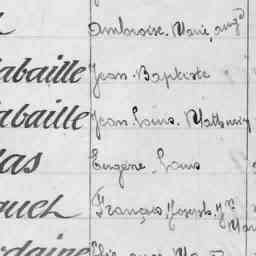 Ambroise. Marie, Aug.
abaille Jean-Baptiste
abaille Jean Louis. Mathurin
as Eugène Louis
quet François Joseph